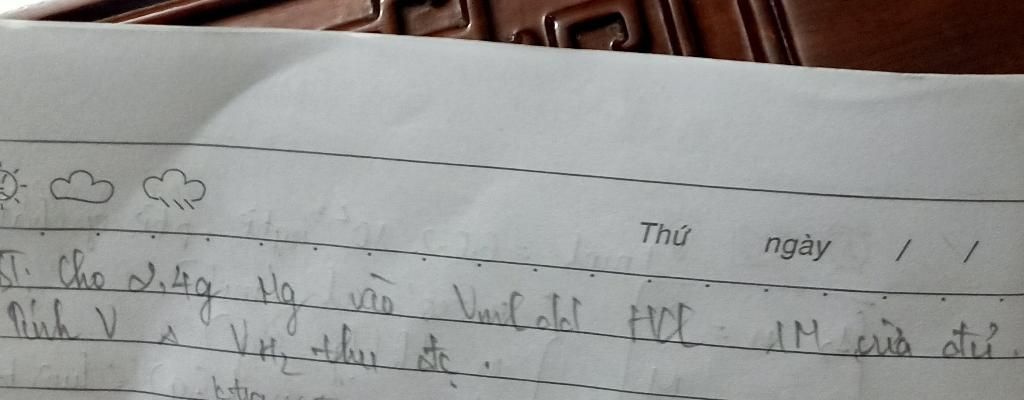 Thứ ngày / /
BT. Cho 2,4g Mg vào Vml dd HCl 1M vừa đủ.
Tính V Δ VH₂ thu đc.